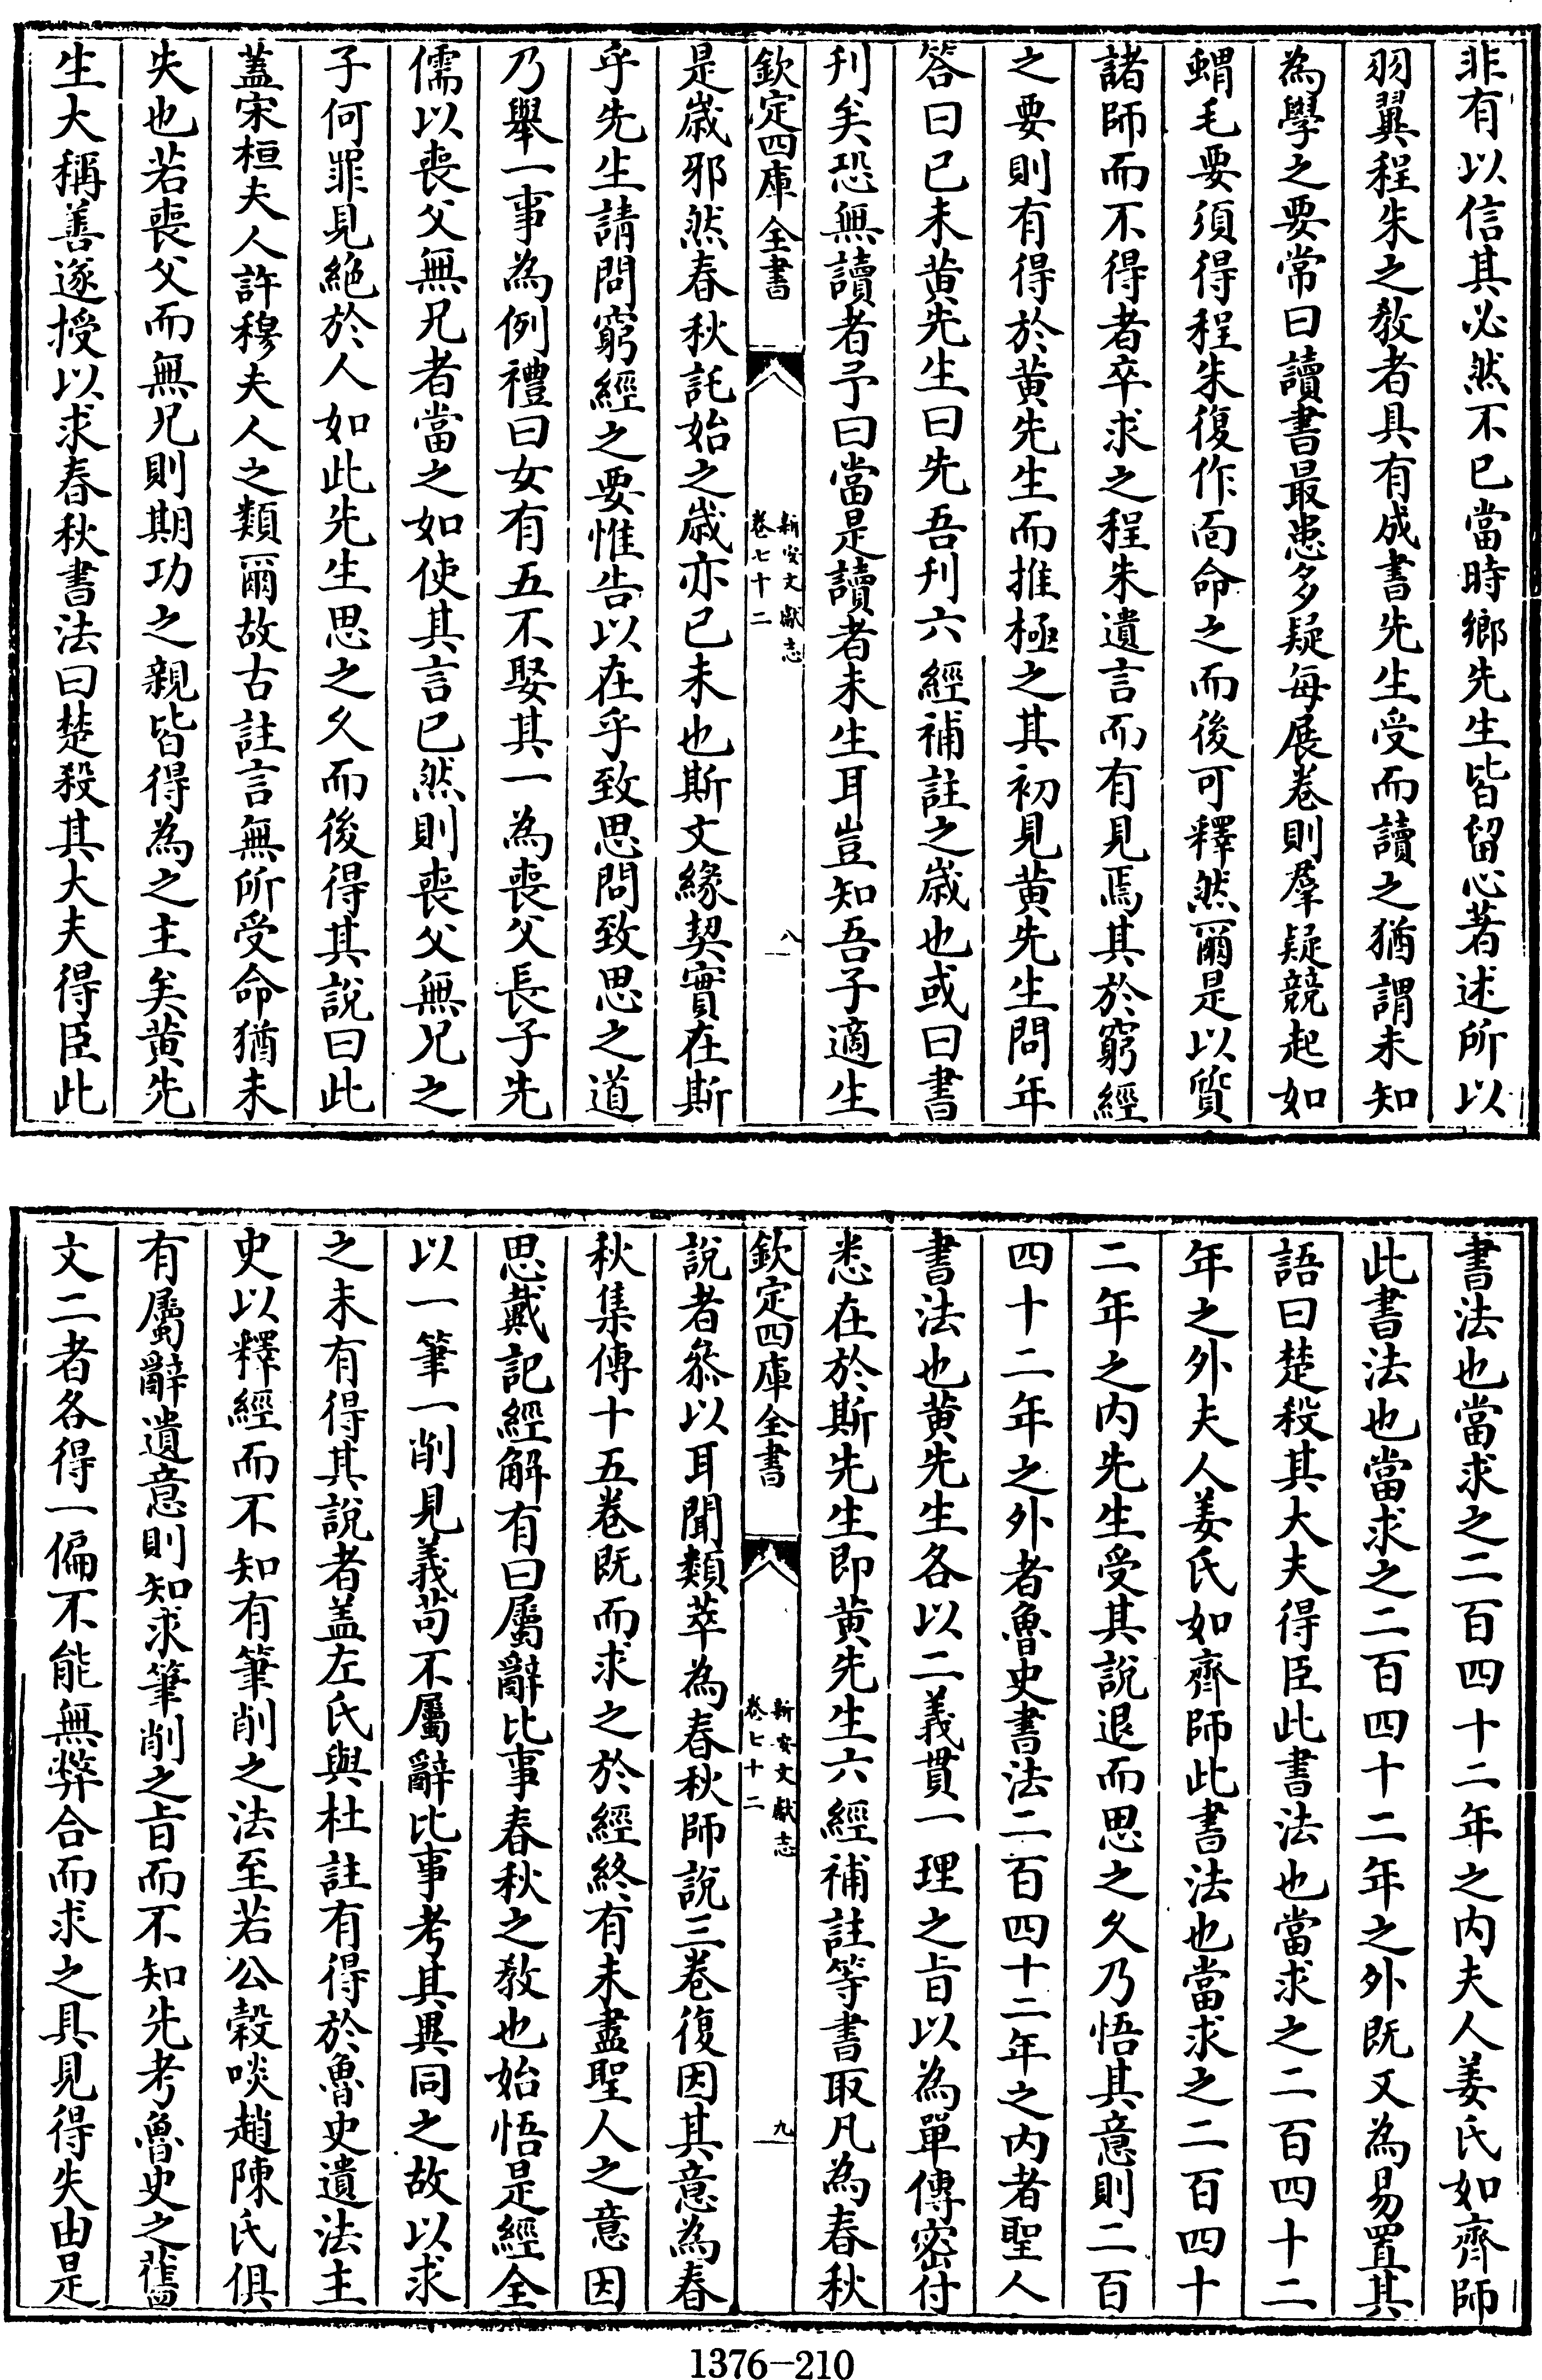 非有以信其必然不已當時鄉先生皆留心著述所以
羽翼程朱之教者具有成書先生受而讀之猶謂未知
為學之要常曰讀書最患多疑每展卷則羣疑競起如
蝟毛要須得程朱復作面命之而後可釋然爾是以質
諸師而不得者卒求之程朱遺言而有見焉其於窮經
之要則有得於黄先生而推極之其初見黄先生問年
答曰已未黄先生曰先吾刋六經補註之歲也或曰書
刋矣恐無讀者予曰當是讀者未生耳豈知吾子適生
欽定四庫全書
新安文獻志
卷七十二
八
是歲邪然春秋託始之歲亦已未也斯文緣契實在斯
乎先生請問窮經之要惟告以在乎致思問致思之道
乃舉一事為例禮曰女有五不娶其一為喪父長子先
儒以喪父無兄者當之如使其言已然則喪父無兄之
子何罪見絶於人如此先生思之久而後得其說曰此
蓋宋桓夫人許穆夫人之類爾故古註言無所受命猶未
失也若喪父而無兄則期功之親皆得為之主矣黄先
生大稱善遂授以求春秋書法曰楚殺其大夫得臣此
書法也當求之二百四十二年之内夫人姜氏如齊師
此書法也當求之二百四十二年之外既又為易置其
語曰楚殺其大夫得臣此書法也當求之二百四十二
年之外夫人姜氏如齊師此書法也當求之二百四十
二年之内先生受其說退而思之久乃悟其意則二百
四十二年之外者魯史書法二百四十二年之内者聖人
書法也黄先生各以二義貫一理之旨以為單傳密付
悉在於斯先生即黄先生六經補註等書取凡為春秋
欽定四庫全書
新安文獻志
卷七十二
九
說者叅以耳聞類萃為春秋師說三卷復因其意為春
秋集傳十五卷既而求之於經終有未盡聖人之意因
思戴記經解有曰屬辭比事春秋之教也始悟是經全
以一筆一削見義苟不屬辭比事考其異同之故以求
之未有得其說者盖左氏與杜註有得於魯史遺法主
史以釋經而不知有筆削之法至若公榖啖趙陳氏俱
有屬辭遺意則知求筆削之旨而不知先考魯史之舊
文二者各得一偏不能無弊合而求之具見得失由是
1376-210